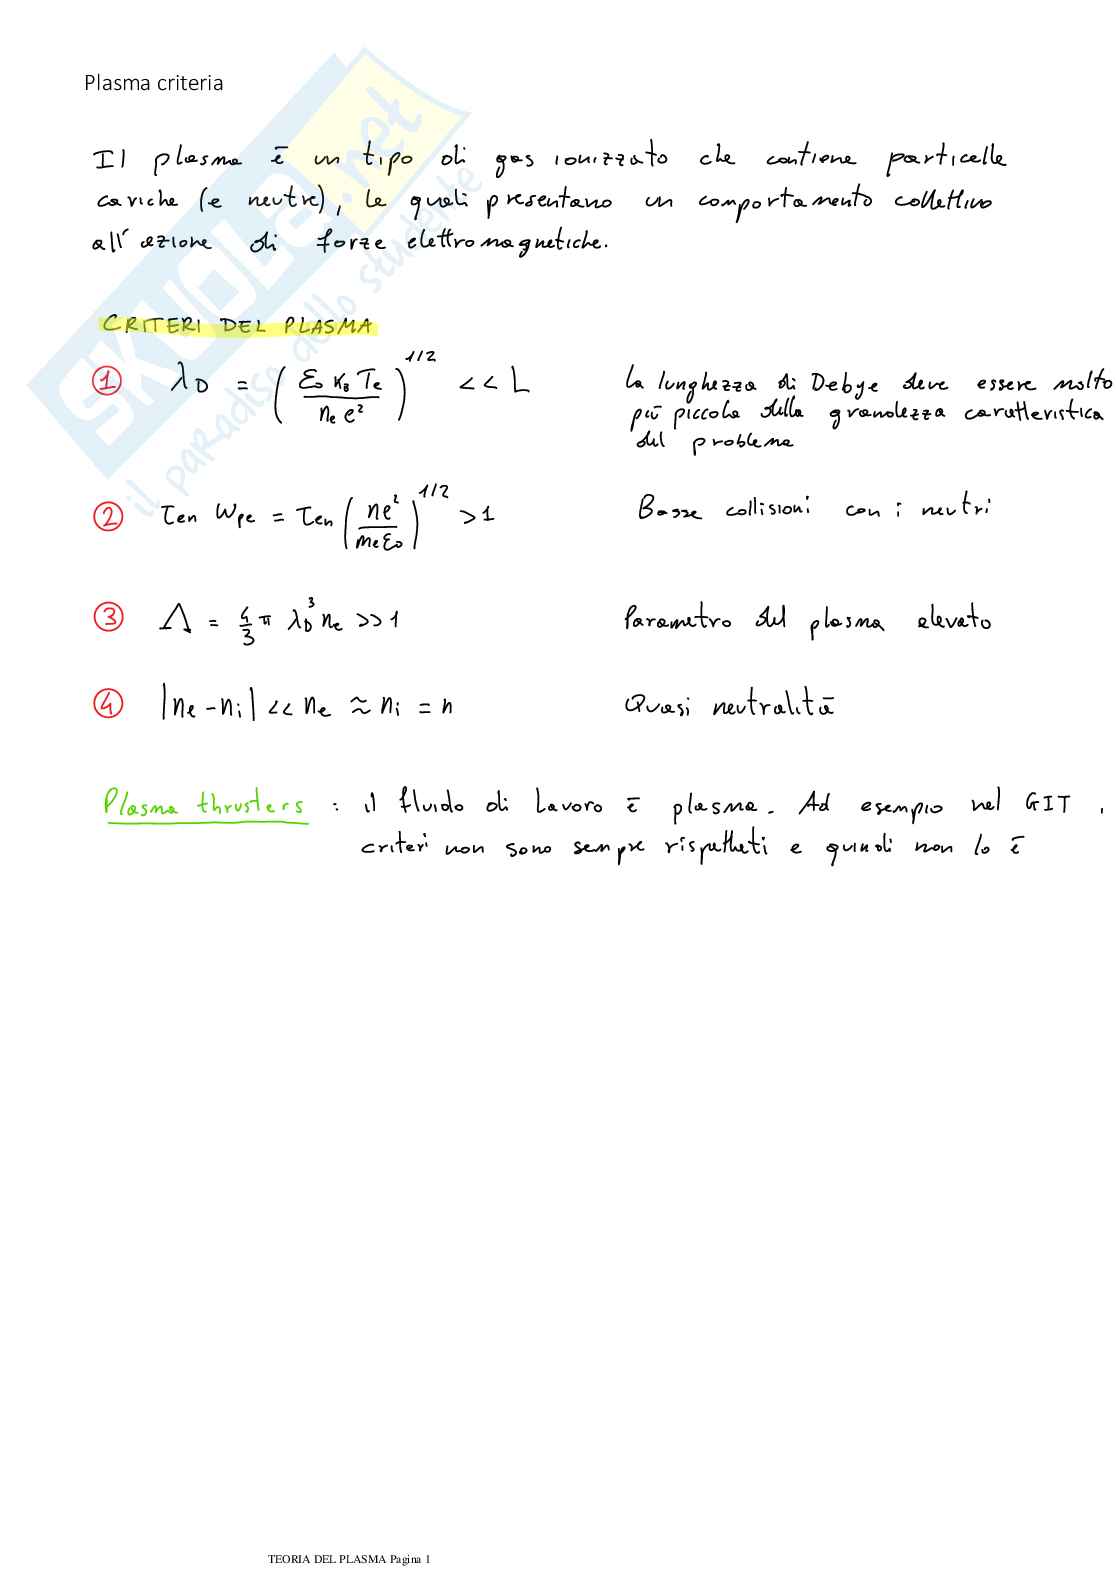 Plasma criteria
Il plasma è un tipo di gas ionizzato che contiene particelle
cariche (e neutre), le quali presentano un comportamento collettivo
all'azione di forze elettromagnetiche.
CRITERI DEL PLASMA
① λD = (ε₀ K_B Te / ne e²)^1/2 << L
La lunghezza di Debye deve essere molto
più piccola della grandezza caratteristica
del problema
② τen ωpe = τen (ne² / me ε₀)^1/2 > 1
Basse collisioni con i neutri
③ Λ = 4/3 π λD³ ne >> 1
Parametro del plasma elevato
④ |ne - ni| << ne ≈ ni = n
Quasi neutralità
Plasma thrusters : il fluido di lavoro è plasma. Ad esempio nel GIT i
criteri non sono sempre rispetteti e quindi non lo è
SKUOLA.net
il paradiso dello studente
TEORIA DEL PLASMA Pagina 1